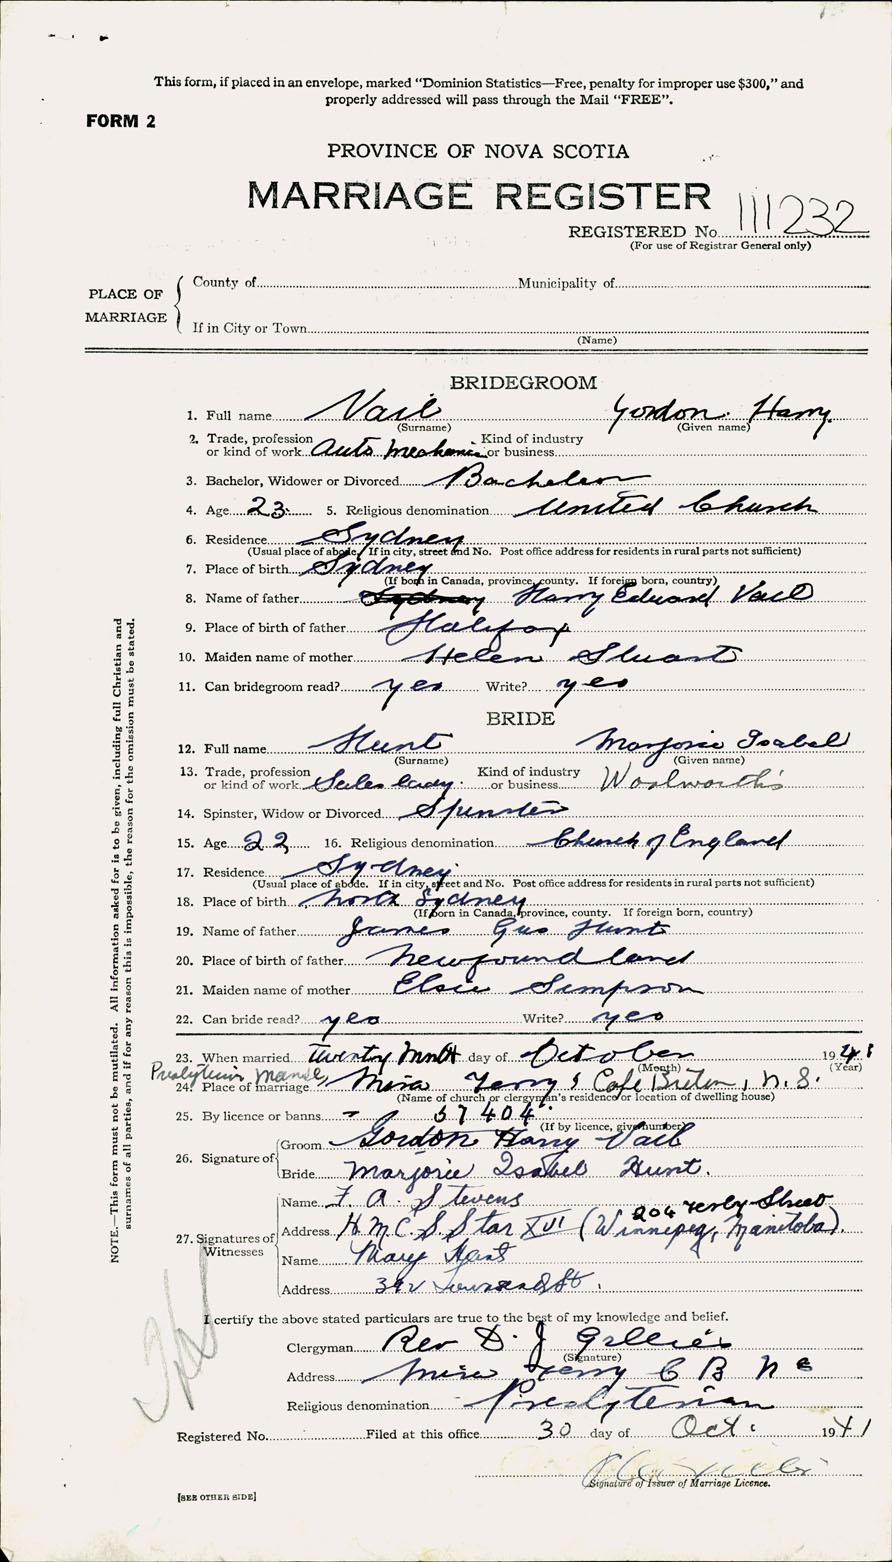 This form, if placed in an envelope, marked "Dominion Statistics—Free, penalty for improper use $300," and
properly addressed will pass through the Mail "FREE".
FORM 2
PROVINCE OF NOVA SCOTIA
MARRIAGE REGISTER
REGISTERED No. 111232
(For use of Registrar General only)
PLACE OF MARRIAGE
County of Municipality of
If in City or Town
(Name)
BRIDEGROOM
1. Full name Vail Gordon Harry
(Surname) (Given name)
2. Trade, profession or kind of work Auto Mechanic Kind of industry or business
3. Bachelor, Widower or Divorced Bachelor
4. Age 23 5. Religious denomination United Church
6. Residence Sydney
(Usual place of abode. If in city, street and No. Post office address for residents in rural parts not sufficient)
7. Place of birth Sydney
(If born in Canada, province, county. If foreign born, country)
8. Name of father Sydney Harry Edward Vail
9. Place of birth of father Halifax
10. Maiden name of mother Helen Stuart
11. Can bridegroom read? yes Write? yes
BRIDE
12. Full name Hunt Marjorie Isabel
(Surname) (Given name)
13. Trade, profession or kind of work Sales lady Kind of industry or business Woolworth's
14. Spinster, Widow or Divorced Spinster
15. Age 22 16. Religious denomination Church of England
17. Residence Sydney
(Usual place of abode. If in city, street and No. Post office address for residents in rural parts not sufficient)
18. Place of birth North Sydney
(If born in Canada, province, county. If foreign born, country)
19. Name of father James Gus Hunt
20. Place of birth of father Newfoundland
21. Maiden name of mother Elsie Simpson
22. Can bride read? yes Write? yes
23. When married twenty ninth day of October 1941
(Month) (Year)
Presbyterian Manse,
24. Place of marriage Mira Ferry, Cape Breton, N.S.
(Name of church or clergyman's residence or location of dwelling house)
25. By licence or banns - 57404
(If by licence, give number)
26. Signature of
Groom Gordon Harry Vail
Bride Marjorie Isabel Hunt.
27. Signatures of Witnesses
Name F. A. Stevens
204 Street
Address H.M.C.S Star XVI (Winnipeg, Manitoba).
Name Mary
Address 392 Townsend St.
I certify the above stated particulars are true to the best of my knowledge and belief.
Clergyman Rev D. J Gillies
(Signature)
Address Mira Ferry C B N S
Religious denomination Presbyterian
Registered No. Filed at this office 30 day of Oct. 1941
Signature of Issuer of Marriage Licence.
[SEE OTHER SIDE]
NOTE.—This form must not be mutilated. All information asked for is to be given, including full Christian and
surnames of all parties, and if for any reason this is impossible, the reason for the omission must be stated.